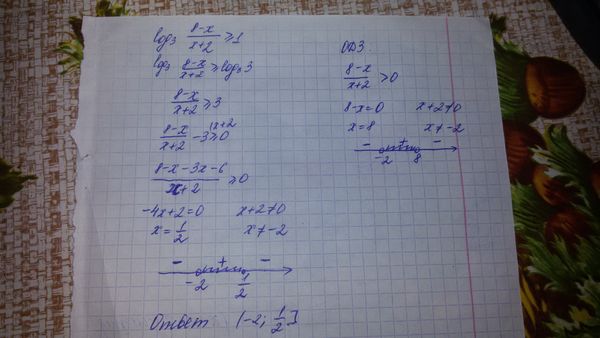 log₃ (8-x)/(x+2) ≥ 1
log₃ (8-x)/(x+2) ≥ log₃ 3
(8-x)/(x+2) ≥ 3
(8-x)/(x+2) - 3 |x+2 ≥ 0
(8-x-3x-6)/(x+2) ≥ 0
-4x+2=0 x+2≠0
x=1/2 x≠-2
- + -
-2 1/2
Ответ (-2; 1/2]
ОДЗ.
(8-x)/(x+2) > 0
8-x=0 x+2≠0
x=8 x≠-2
- + -
-2 8